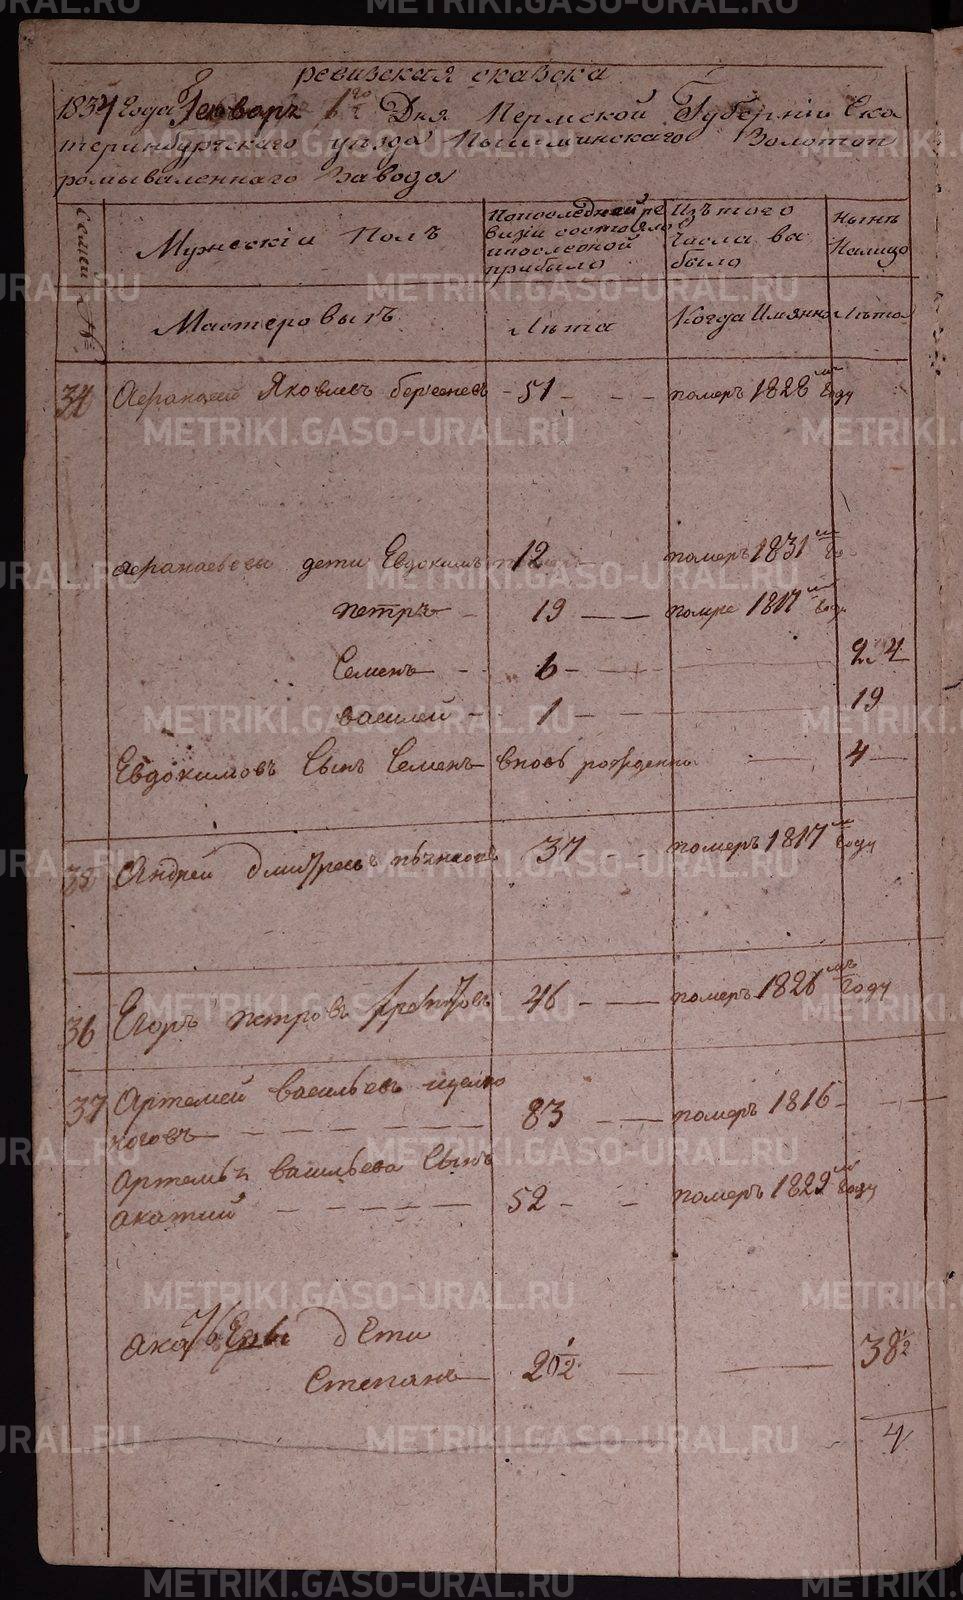 ревизская сказска
1834 Года Генваря 1го Дня Пермской Губерніи Ека
теринбургскаго уезда Пышминскаго Золотоп
ромываленнаго Завода
Семей №
Мужескій Полъ
Попоследней ре
визіи состояло
ипоследной
прибыло
Изъ того
Числа вы
было
Нынѣ
Налицо
Мастеровыхъ
Лѣта
Когда Имянно
Лѣта
34 Афранасей Яковлевъ береневъ - 51 - померъ 1828м Году
Афранасьевы дети Евдокимъ 12 - померъ 1831м Го
петръ - 19 - помре 1817м Году
Семенъ - 6 - 24
василей - 1 - 19
Евдокимовъ Сынъ Семенъ вновь рожденны 4
Андрей дмитреевъ 37 - померъ 1817м Году
36 Егоръ петровъ 46 - померъ 1826мъ Году
37 Артемей васильевъ щелко
ноговъ - 83 - померъ 1816
Артемья васильева Сынъ
акатий - 52 - померъ 1829м Году
дети
Степанъ 20 1/2 38 1/2
4
METRIKI.GASO-URAL.RU